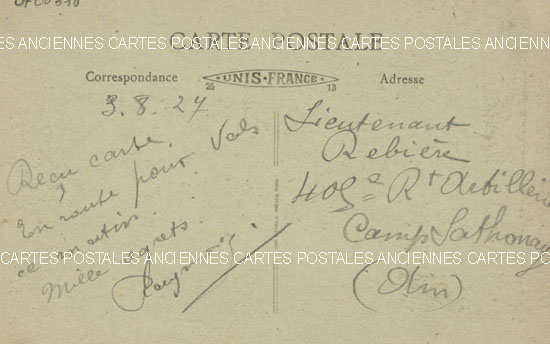 CARTE POSTALE
ANCIENNES CARTES POSTALES ANCIENNES CARTES POSTALES ANCIENNES CARTES POSTALES
Correspondance
25 UNIS-FRANCE 13
Adresse
3.8.27
Reçu carte.
En route pour Vals
ce matin.
Mille
Lieutenant
Rebière
409e Rt Artillerie
Camp Sathonay
(Ain)
CARTES POSTALES ANCIENNES CARTES POSTALES ANCIENNES CARTES POSTALES